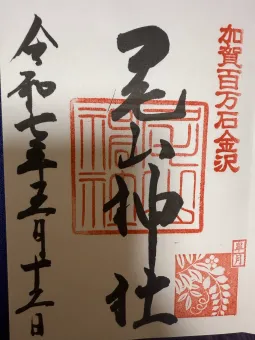 加賀百万石金沢
皐月
尾山神社
令和七年五月十二日